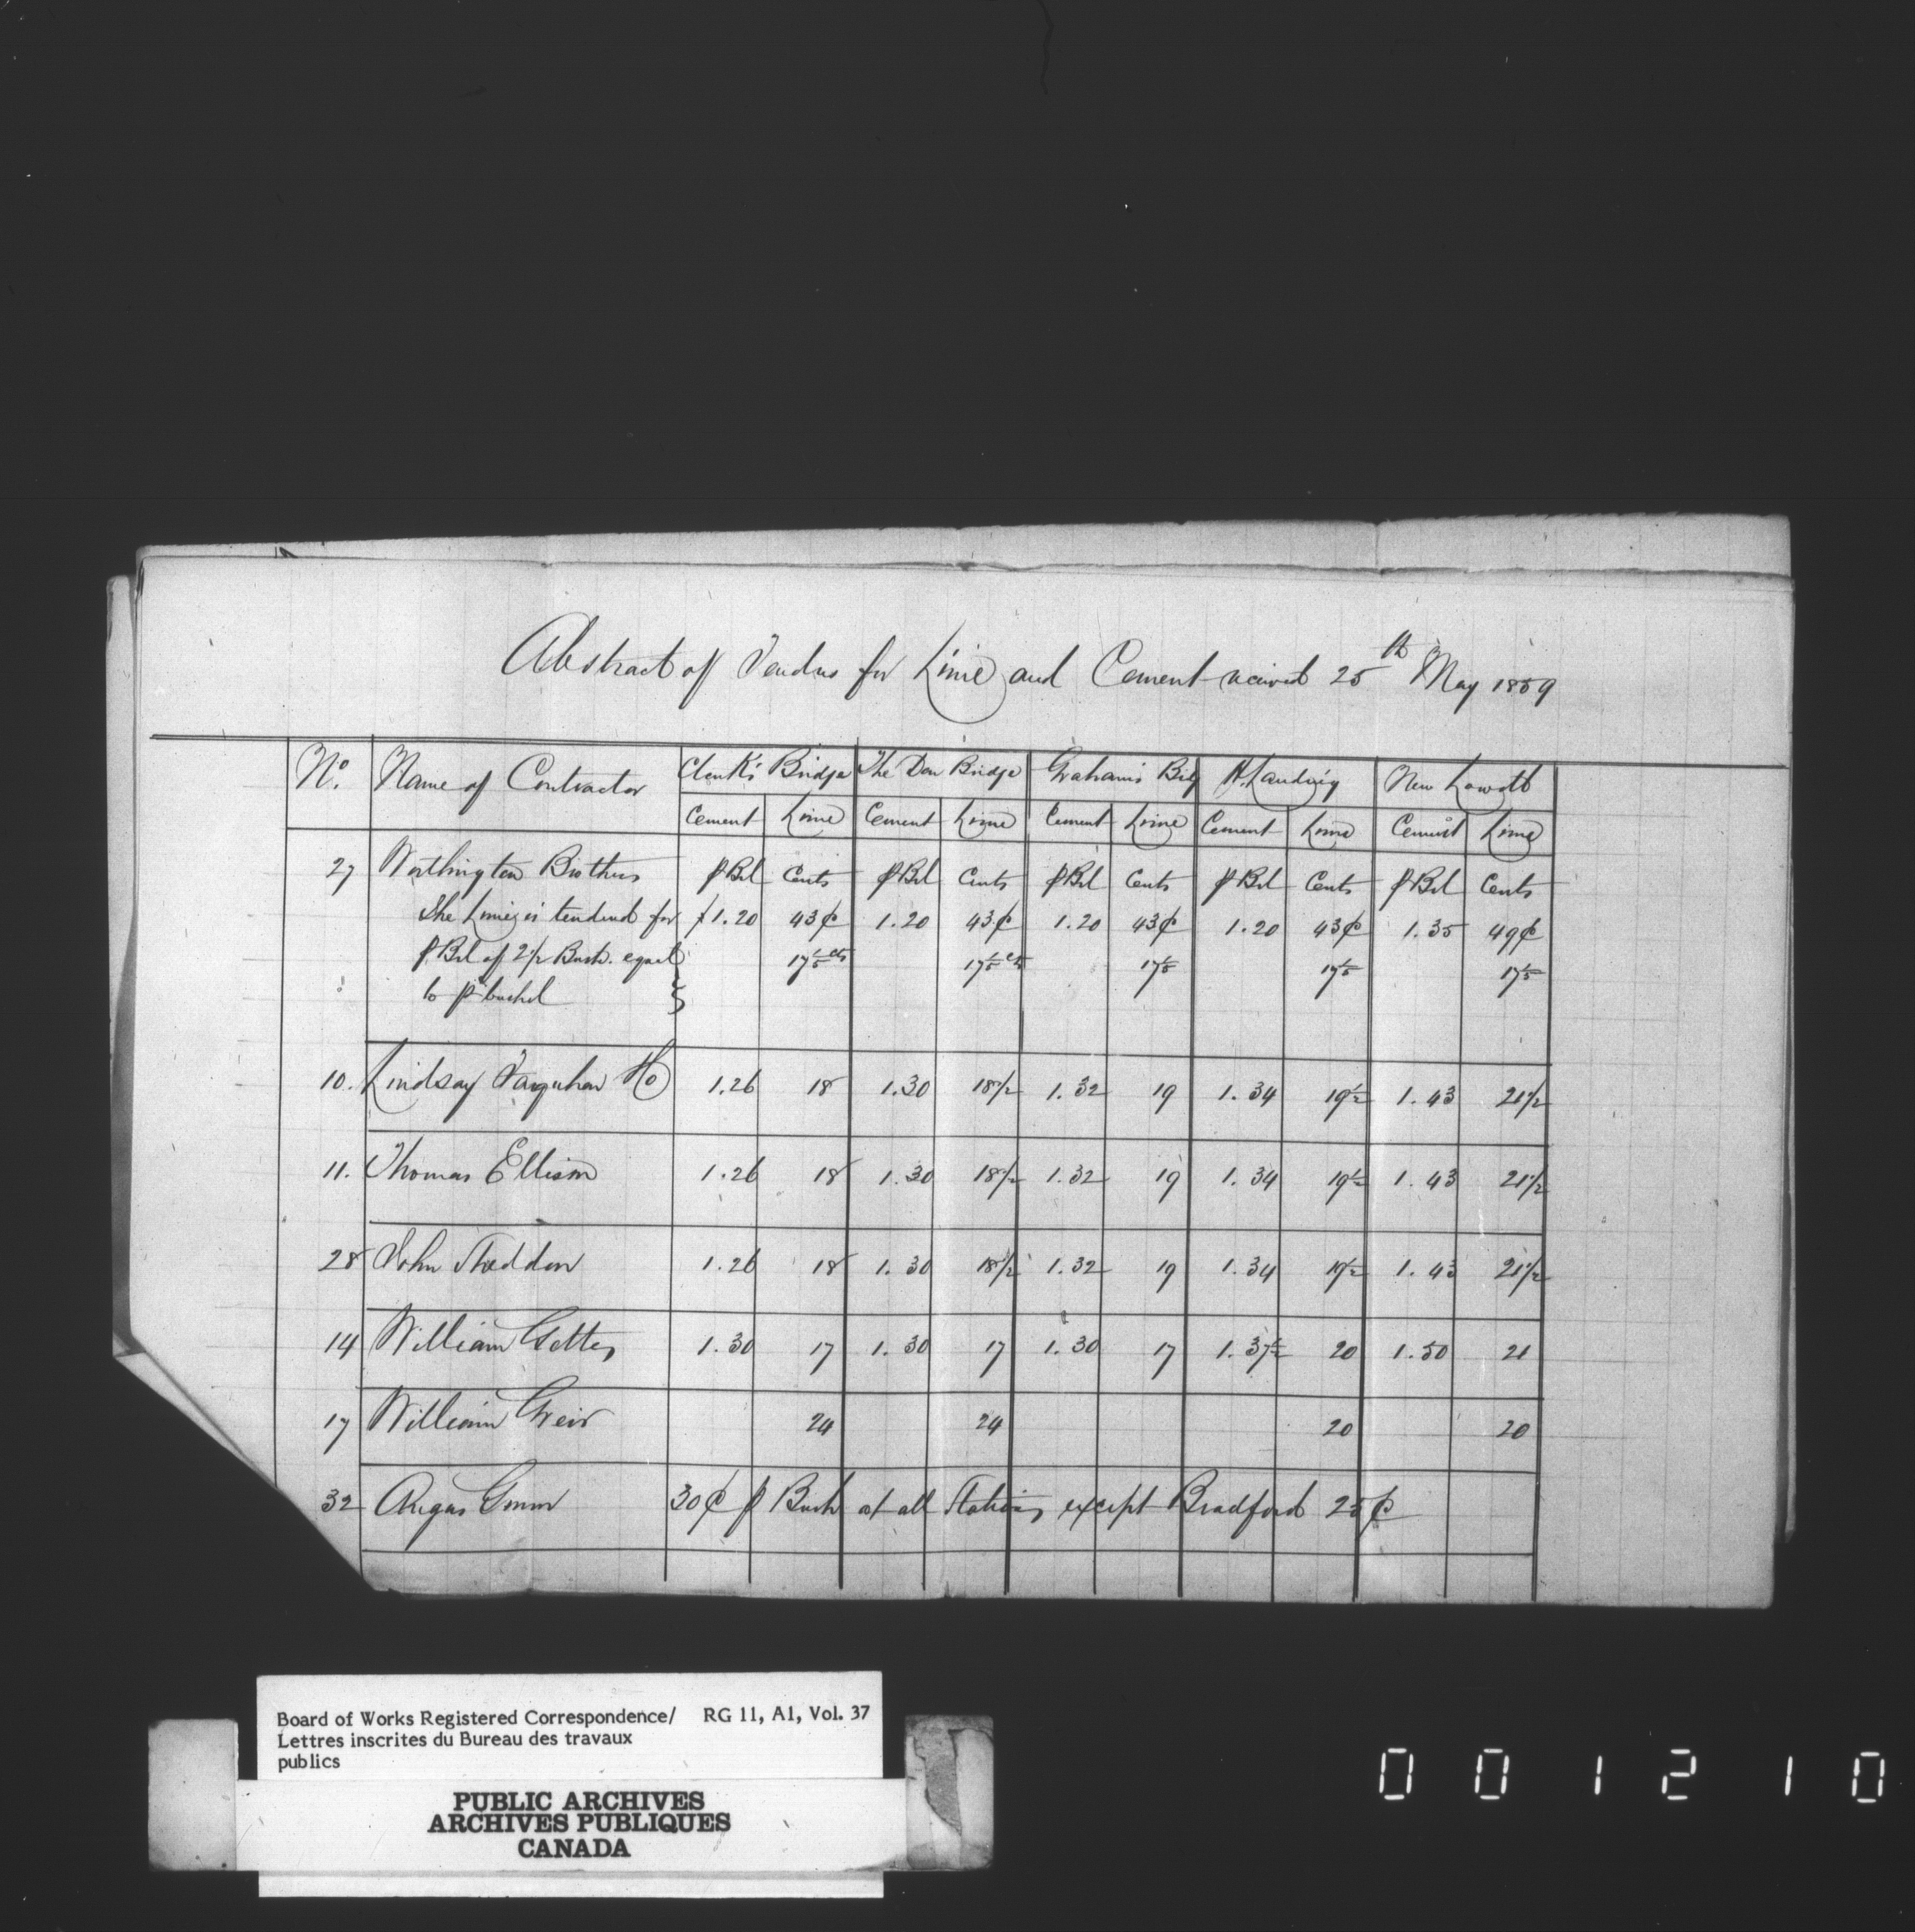 Abstract of Tenders for Lime and Cement received 25th May 1859
No. Name of Contractor Clark's Bridge The Don Bridge Graham's Bdg H. Landing New Lowell
Cement Lime Cement Lime Cement Lime Cement Lime Cement Lime
27 Worthington Brothers ⅌ Brl Cents ⅌ Brl Cents ⅌ Brl Cents ⅌ Brl Cents ⅌ Brl Cents
The Lime is tendered for 1.20 43¢ 1.20 43¢ 1.20 43¢ 1.20 43¢ 1.35 49¢
⅌ Brl of 2½ Bush. equal 17⅕ cts 17⅕ cts 17⅕ 17⅕ 17⅕
to ⅌ bushel
10. Lindsay Farquhar & Co 1.26 18 1.30 18½ 1.32 19 1.34 19½ 1.43 21½
11. Thomas Ellison 1.26 18 1.30 18½ 1.32 19 1.34 19½ 1.43 21½
28 John Shedden 1.26 18 1.30 18½ 1.32 19 1.34 19½ 1.43 21½
14 William 1.30 17 1.30 17 1.30 17 1.37½ 20 1.50 21
17 William Greir 24 24 20 20
32 Angus 30¢ ⅌ Bush at all Stations except Bradford 25¢
Board of Works Registered Correspondence/ RG 11, A1, Vol. 37
Lettres inscrites du Bureau des travaux
publics
PUBLIC ARCHIVES
ARCHIVES PUBLIQUES
CANADA
001210